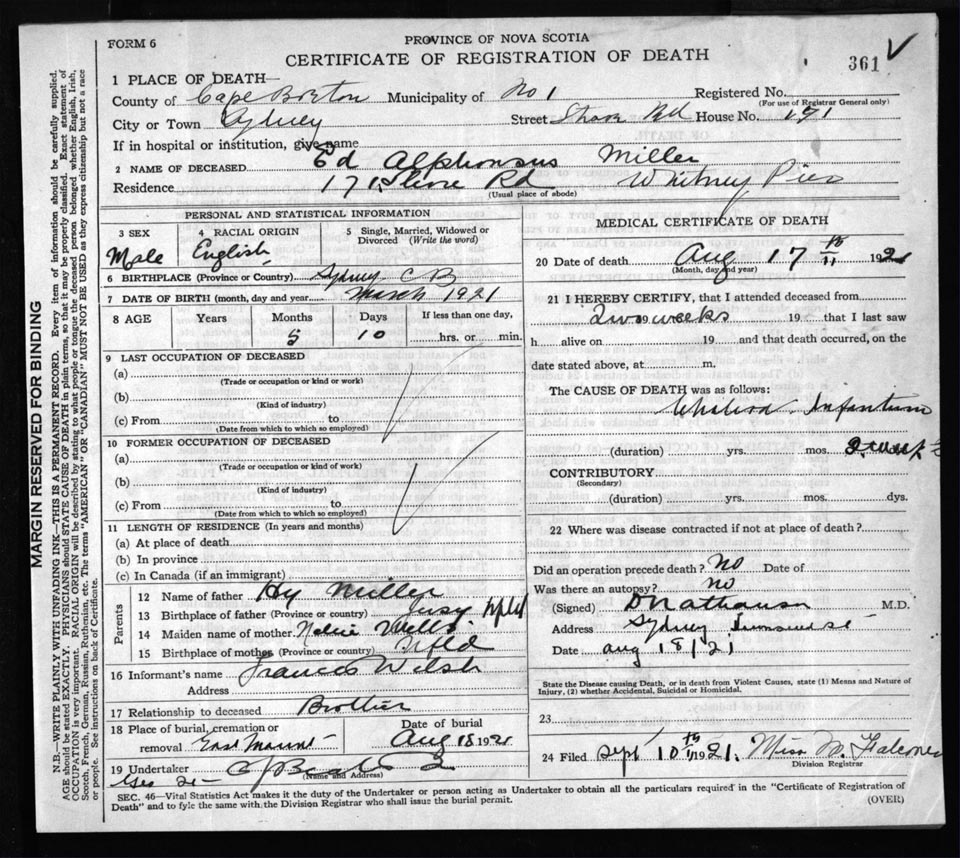 FORM 6
PROVINCE OF NOVA SCOTIA
CERTIFICATE OF REGISTRATION OF DEATH
361
1 PLACE OF DEATH—
County of Cape Breton Municipality of No 1 Registered No.
(For use of Registrar General only)
City or Town Sydney Street Shore Rd House No. 171
If in hospital or institution, give name
2 NAME OF DECEASED Ed Alphonsus Miller
Residence 171 Shore Rd Whitney Pier
(Usual place of abode)
PERSONAL AND STATISTICAL INFORMATION
3 SEX Male
4 RACIAL ORIGIN English
5 Single, Married, Widowed or Divorced (Write the word)
6 BIRTHPLACE (Province or Country) Sydney C B
7 DATE OF BIRTH (month, day and year) March 1921
8 AGE Years Months 5 Days 10 If less than one day, hrs. or min.
9 LAST OCCUPATION OF DECEASED
(a)
(Trade or occupation or kind or work)
(b)
(Kind of industry)
(c) From to
(Date from which to which so employed)
10 FORMER OCCUPATION OF DECEASED
(a)
(Trade or occupation or kind of work)
(b)
(Kind of industry)
(c) From to
(Date from which to which so employed)
11 LENGTH OF RESIDENCE (In years and months)
(a) At place of death
(b) In province
(c) In Canada (if an immigrant)
Parents
12 Name of father Hy Miller
13 Birthplace of father (Province or country) Nfld
14 Maiden name of mother Nellie Wells
15 Birthplace of mother (Province or country) Nfld
16 Informant's name Frances Welsh
Address
17 Relationship to deceased Brother
18 Place of burial, cremation or removal East Mount
Date of burial Aug 18 1921
19 Undertaker
(Name and Address)
MEDICAL CERTIFICATE OF DEATH
20 Date of death Aug 17th 1921
(Month, day and year)
21 I HEREBY CERTIFY, that I attended deceased from
Two weeks 19 that I last saw
h alive on 19 and that death occurred, on the
date stated above, at m.
The CAUSE OF DEATH was as follows:
Cholera Infantum
(duration) yrs. mos. 2 weeks
CONTRIBUTORY
(Secondary)
(duration) yrs. mos. dys.
22 Where was disease contracted if not at place of death?
Did an operation precede death? No Date of
Was there an autopsy? no
(Signed) D Nathanson M.D.
Address Sydney
Date Aug 18/21
State the Disease causing Death, or in death from Violent Causes, state (1) Means and Nature of
Injury, (2) whether Accidental, Suicidal or Homicidal.
23
24 Filed Sept 10th 1921. Miss M. Falconer
Division Registrar
SEC. 46—Vital Statistics Act makes it the duty of the Undertaker or person acting as Undertaker to obtain all the particulars required in the "Certificate of Registration of
Death" and to fyle the same with the Division Registrar who shall issue the burial permit.
(OVER)
MARGIN RESERVED FOR BINDING
N.B.—WRITE PLAINLY WITH UNFADING INK—THIS IS A PERMANENT RECORD. Every item of information should be carefully supplied.
AGE should be stated EXACTLY. PHYSICIANS should STATE CAUSE OF DEATH in plain terms, so that it may be properly classified. Exact statement of
OCCUPATION is very important. RACIAL ORIGIN will be described by stating to what people or tongue the deceased person belonged whether English, Irish,
Scotch, French, German, Russian, Ruthenian, etc. The terms "AMERICAN" or "CANADIAN" MUST NOT BE USED as they express citizenship but not a race
or people. See instructions on back of Certificate.